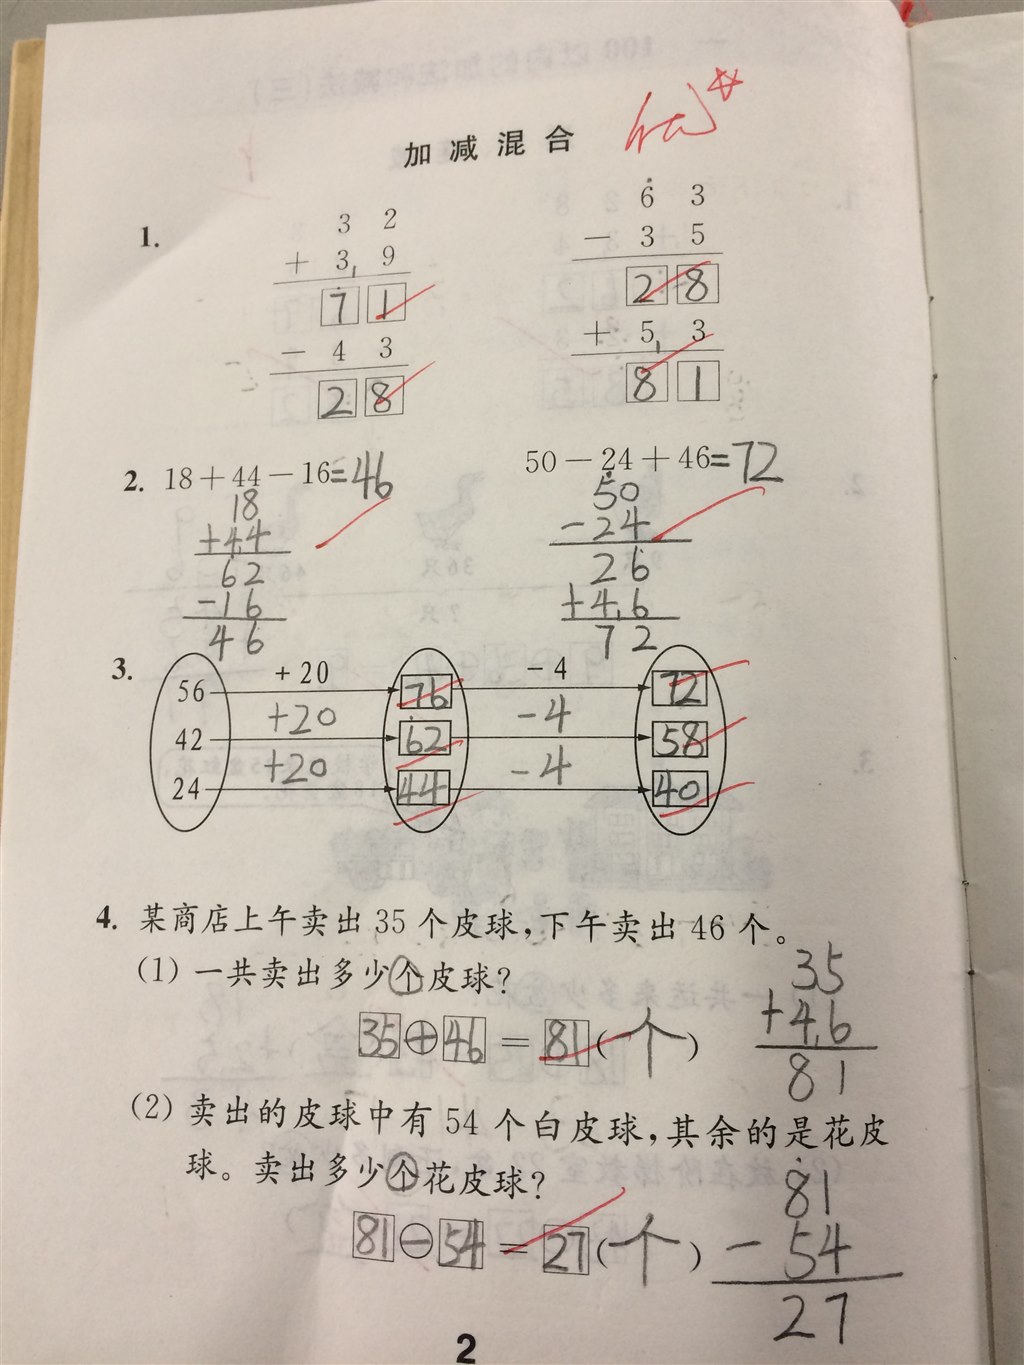 加减混合
1.
3 2
+ 3 9
7 1
− 4 3
2 8
6 3
− 3 5
2 8
+ 5 3
8 1
2. 18+44−16=46
18
+44
62
−16
46
50−24+46=72
50
−24
26
+46
72
3.
56 +20 76 −4 72
42 +20 62 −4 58
24 +20 44 −4 40
4. 某商店上午卖出 35 个皮球，下午卖出 46 个。
(1) 一共卖出多少个皮球？
35+46=81(个)
35
+46
81
(2) 卖出的皮球中有 54 个白皮球，其余的是花皮
球。卖出多少个花皮球？
81−54=27(个)
81
−54
27
2